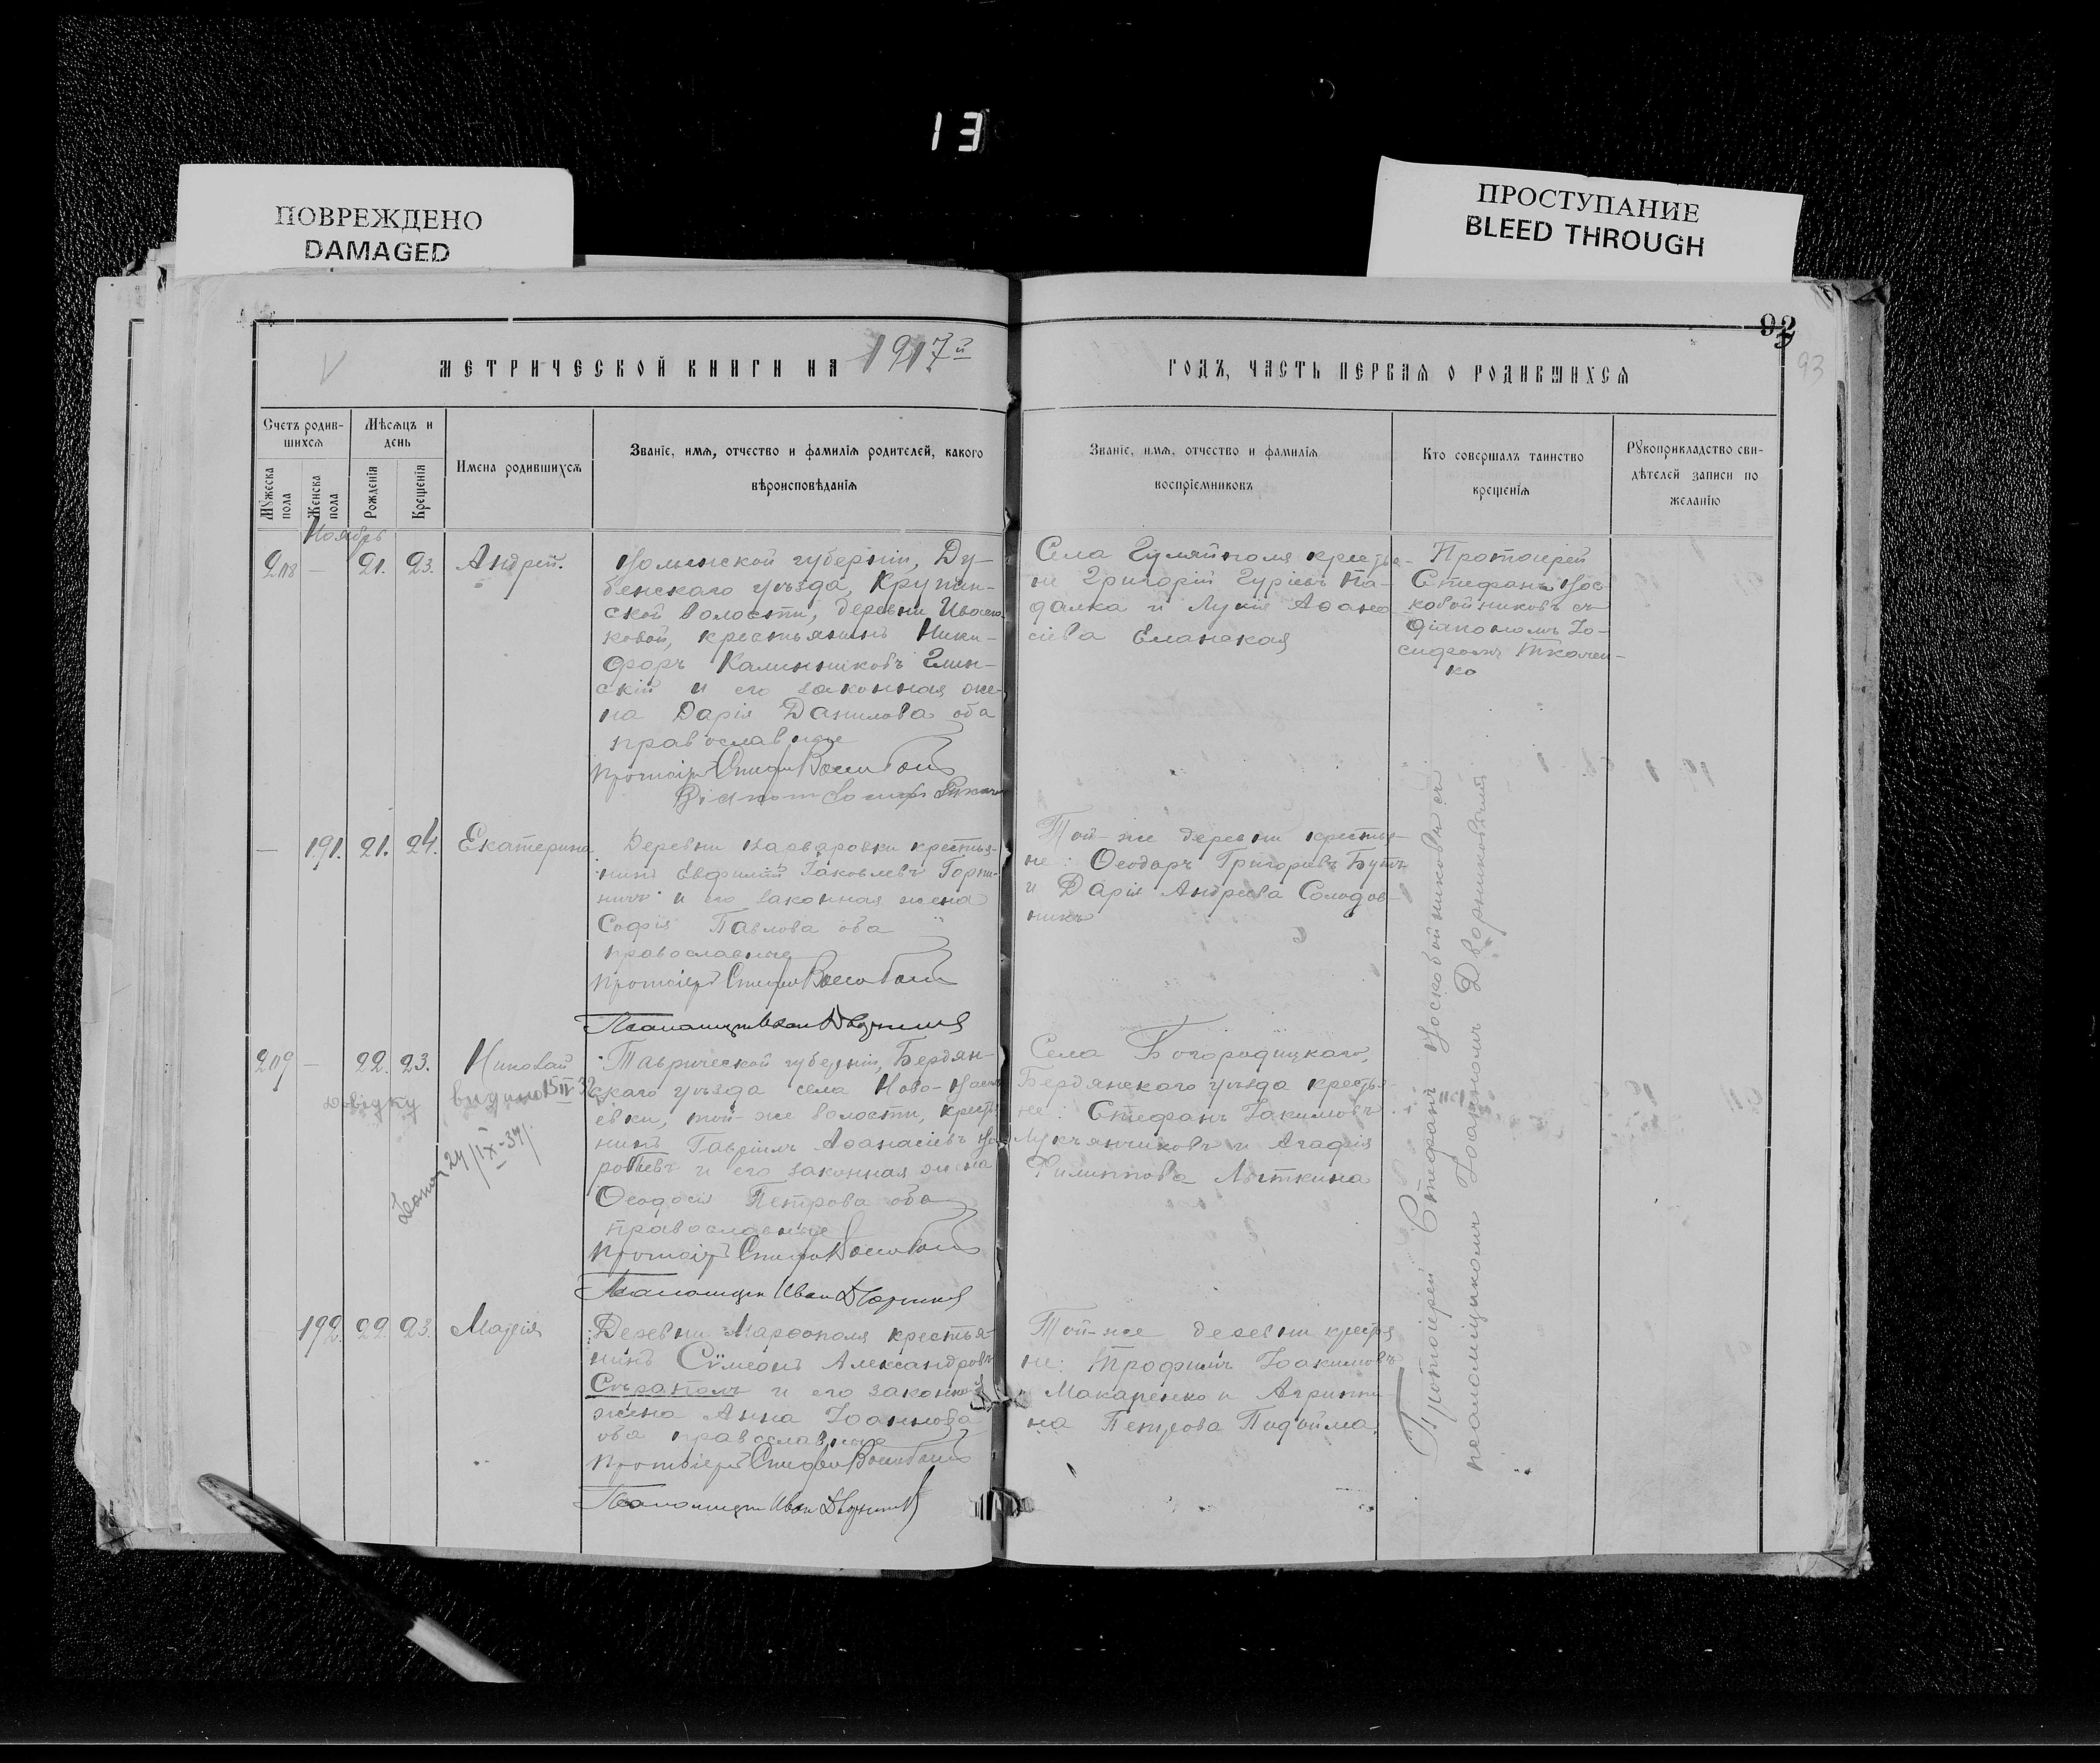 13
ПОВРЕЖДЕНО
DAMAGED
ПРОСТУПАНИЕ
BLEED THROUGH
92
93
МЕТРИЧЕСКОЙ КНИГИ НА 1917й
ГОДЪ, ЧАСТЬ ПЕРВАЯ О РОДИВШИХСЯ
Счетъ родив-
шихся
Мужеска
пола
Женска
пола
Мѣсяцъ и
день
Рожденія
Крещенія
Имена родившихся
Званіе, имя, отчество и фамилія родителей, какого
вѣроисповѣданія
Званіе, имя, отчество и фамилія
воспріемниковъ
Кто совершалъ таинство
крещенія
Рукоприкладство сви-
дѣтелей записи по
желанію
Ноябрь
218 — 21. 23. Андрей.
Волынской губерніи, Ду-
бенскаго уѣзда, Крупин-
ской волости, деревни
ковой, крестьянинъ Ники-
форъ Калинниковъ Глин-
скій и его законная же-
на Дарія Данилова оба
православные
Протоіерей Стефанъ
Діаконъ Іосифъ
Села Гуляйполя крестья-
не Григорій Гуріевъ Па-
далка и Лукія Аѳана-
сіева Еланская
Протоіерей
Стефанъ Вос-
кобойниковъ съ
діакономъ Іо-
сифомъ Ткачен-
ко
— 191. 21. 24. Екатерина
Деревни Варваровки крестья-
нинъ Евфимій Іаковлевъ Горпи-
ничъ и его законная жена
Софія Павлова оба
православные
Протоіерей Стефанъ
Псаломщикъ Иван Дворников
Той-же деревни крестья-
не: Ѳеодоръ Григорьевъ
и Дарія Андреева Солодов-
никъ
219 — 22. 23. Николай
Довідку видано 15 IV 32
24/IX-37
Таврической губерніи, Бердян-
скаго уѣзда села Ново-Васил
евки, той-же волости, кресть
нинъ Гавріилъ Аѳанасіевъ Во
робьевъ и его законная жена
Ѳеодосія Петрова оба
православные
Протоіерей Стефанъ
Псаломщик Иван Дворников
Села Богородицкаго,
Бердянскаго уѣзда крестья-
не: Стефанъ Іакимовъ
Лукъянчиковъ и Агафія
Филиппова Лыткина
192. 22. 23. Марія
Деревни Марѳополя крестья-
нинъ Сѵмеонъ Александровъ
и его законная
жена Анна Іоаннова
оба православные
Протоіерей Стефанъ
Псаломщик Иван Дворников
Той-же деревни крестья
не: Трофимъ Іоакимовъ
Макаренко и Агриппи-
на Петрова Подойма.
Протоіерей Стефанъ Воскобойниковъ съ
псаломщикомъ Іоанномъ Дворниковымъ